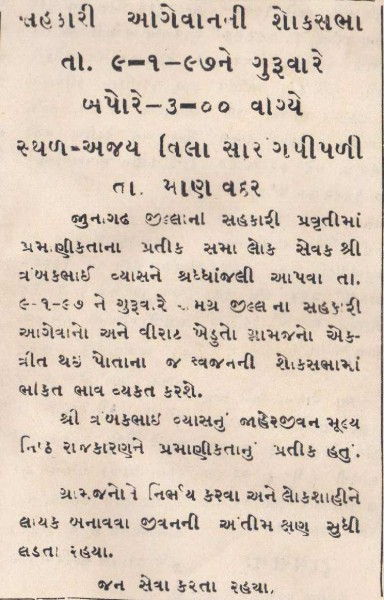 સહકારી આગેવાનની શોકસભા
તા. ૯-૧-૯૭ને ગુરૂવારે
બપોરે-૩-૦૦ વાગ્યે
સ્થળ-અજય વિલા સારંગપીપળી
તા. માણાવદર
જુનાગઢ જીલ્લાના સહકારી પ્રવૃતીમાં
પ્રમાણીકતાના પ્રતીક સમા લોક સેવક શ્રી
ત્રંબકભાઈ વ્યાસને શ્રધ્ધાંજલી આપવા તા.
૯-૧-૯૭ ને ગુરૂવારે સમગ્ર જીલ્લના સહકારી
આગેવાનો અને વીરાટ ખેડુતો ગ્રામજનો એક-
ત્રીત થઇ પોતાના જ સ્વજનની શોકસભામાં
ભકિત ભાવ વ્યકત કરશે.
શ્રી ત્રંબકભાઇ વ્યાસનું જાહેરજીવન મૂલ્ય
નિષ્ઠ રાજકારણને પ્રમાણીકતાનું પ્રતીક હતું.
ગ્રામજનોને નિર્ભય કરવા અને લોકશાહીને
લાયક બનાવવા જીવનની અંતીમ ક્ષણ સુધી
લડતા રહયા.
જન સેવા કરતા રહયા.